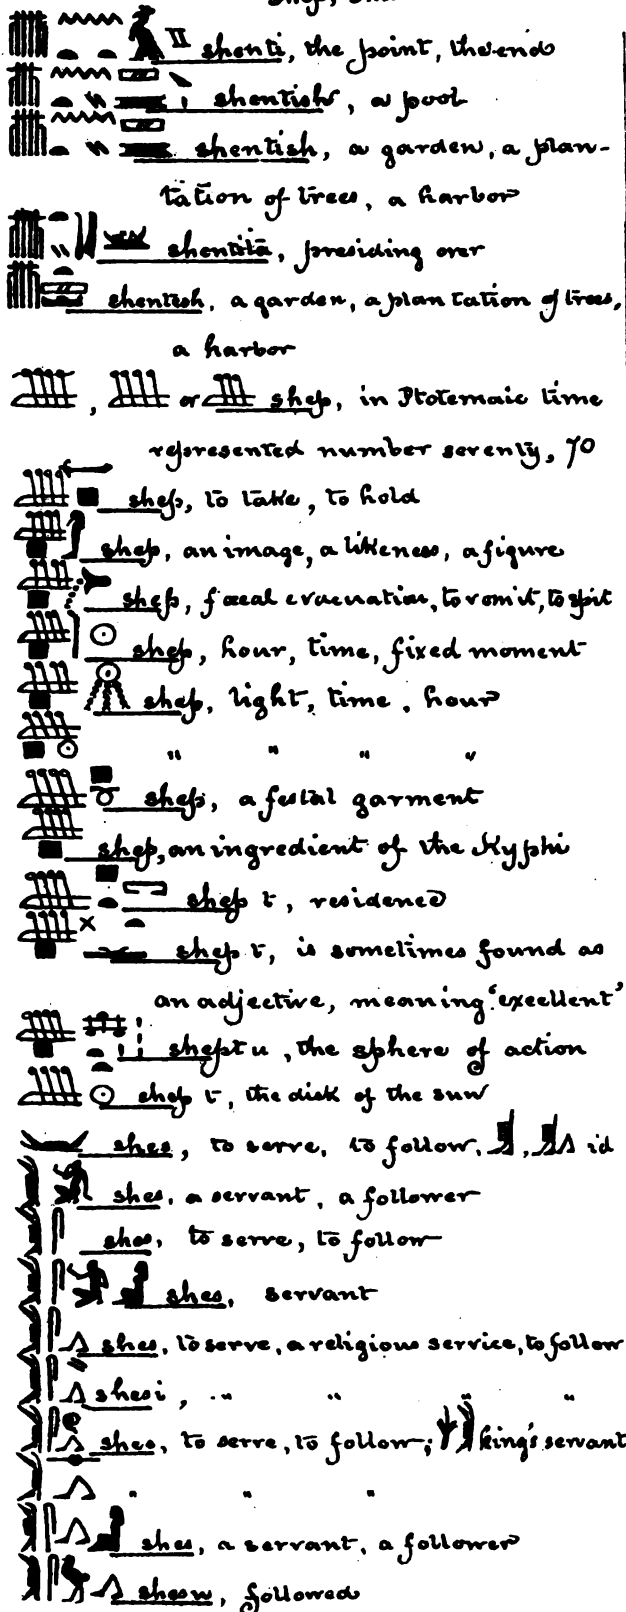 shenti, the point, the end
shentish, a pool
shentish, a garden, a plan-
tation of trees, a harbor
shentita, presiding over
shentesh, a garden, a plantation of trees,
a harbor
, or shep, in Ptolemaic time
represented number seventy, 70
shep, to take, to hold
shep, an image, a likeness, a figure
shep, faecal evacuation, to vomit, to spit
shep, hour, time, fixed moment
shep, light, time, hour
" " " "
shep, a festal garment
shep, an ingredient of the Kyphi
shep t, residence
shep t, is sometimes found as
an adjective, meaning 'excellent'
sheptu, the sphere of action
shep t, the disk of the sun
shes, to serve, to follow, , id
shes, a servant, a follower
shes, to serve, to follow
shes, servant
shes, to serve, a religious service, to follow
shesi, " " " "
shes, to serve, to follow; king's servant
" " "
shes, a servant, a follower
shesu, followed